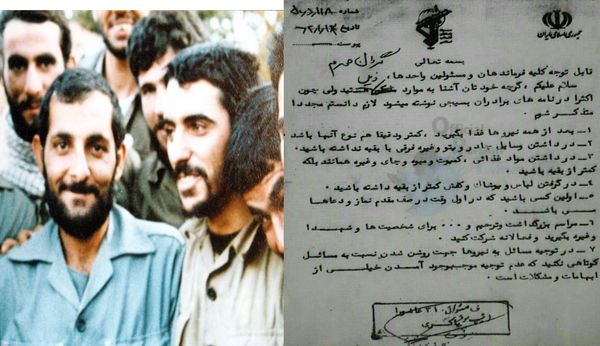 جمهوری اسلامی ایران
شماره
تاریخ
پیوست
بسمه تعالی
قابل توجه کلیه فرماندهان و مسئولین واحدها،
سلام علیکم، گرچه خودتان آشنا به موارد هستید ولی چون
اکثرا در نامه های برادران بسیجی نوشته میشود لازم دانستم مجددا
متذکر شوم
۱- بعد از همه نیروها غذا بگیرید، کمتر ودقیقا هم نوع آنها باشد
۲- در داشتن وسایل چادر و پتو وغیره فرقی با بقیه نداشته باشید.
۳- در داشتن مواد غذائی، کمپوت و میوه و چای و غیره همانند بلکه
کمتر از بقیه باشید.
۴- در گرفتن لباس و پوشاک وکفش کمتر از بقیه داشته باشید.
۵- اولین کسی باشید که در اول وقت در صف مقدم نماز و دعاها
می باشید.
۶- مراسم بزرگداشت وترحیم و ۰۰۰ برای شخصیت ها و شهدا
وغیره بگیرید و فعالانه شرکت کنید.
۷- در توجیه مسائل به نیروها جهت روشن شدن نسبت به مسائل
کوتاهی نکنید که عدم توجیه موجب بوجود آمدن خیلی از
ابهامات و مشکلات است.
ل ۳۱ عاشورا